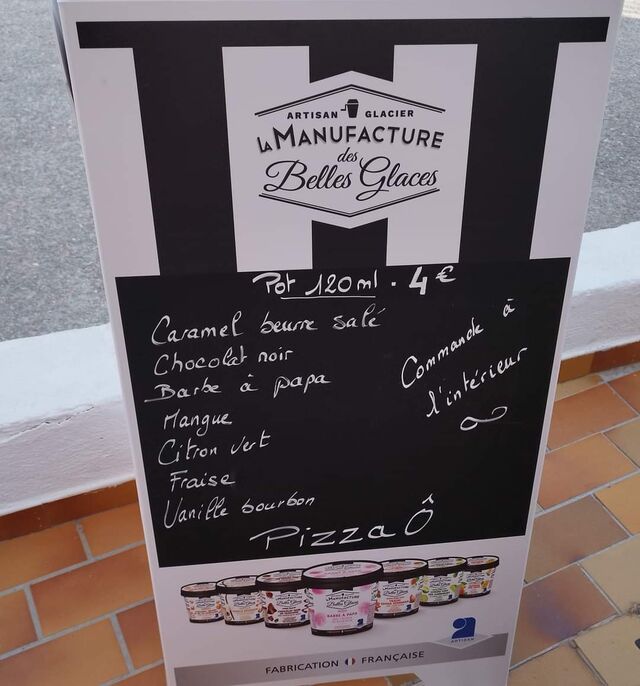 ARTISAN GLACIER
LA MANUFACTURE
des
Belles Glaces
Pot 120ml . 4€
Caramel beurre salé
Chocolat noir
Barbe à papa
Mangue
Citron vert
Fraise
Vanille bourbon
Commande à
l'intérieur
Pizza Ô
MANUFACTURE
Belles Glaces
BARBE À PAPA
ARTISAN
FABRICATION FRANÇAISE